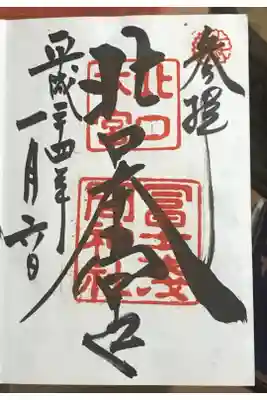 参拝
北口本宮
北口
本宮
冨士浅
間神社
平成二十四年
一月六日